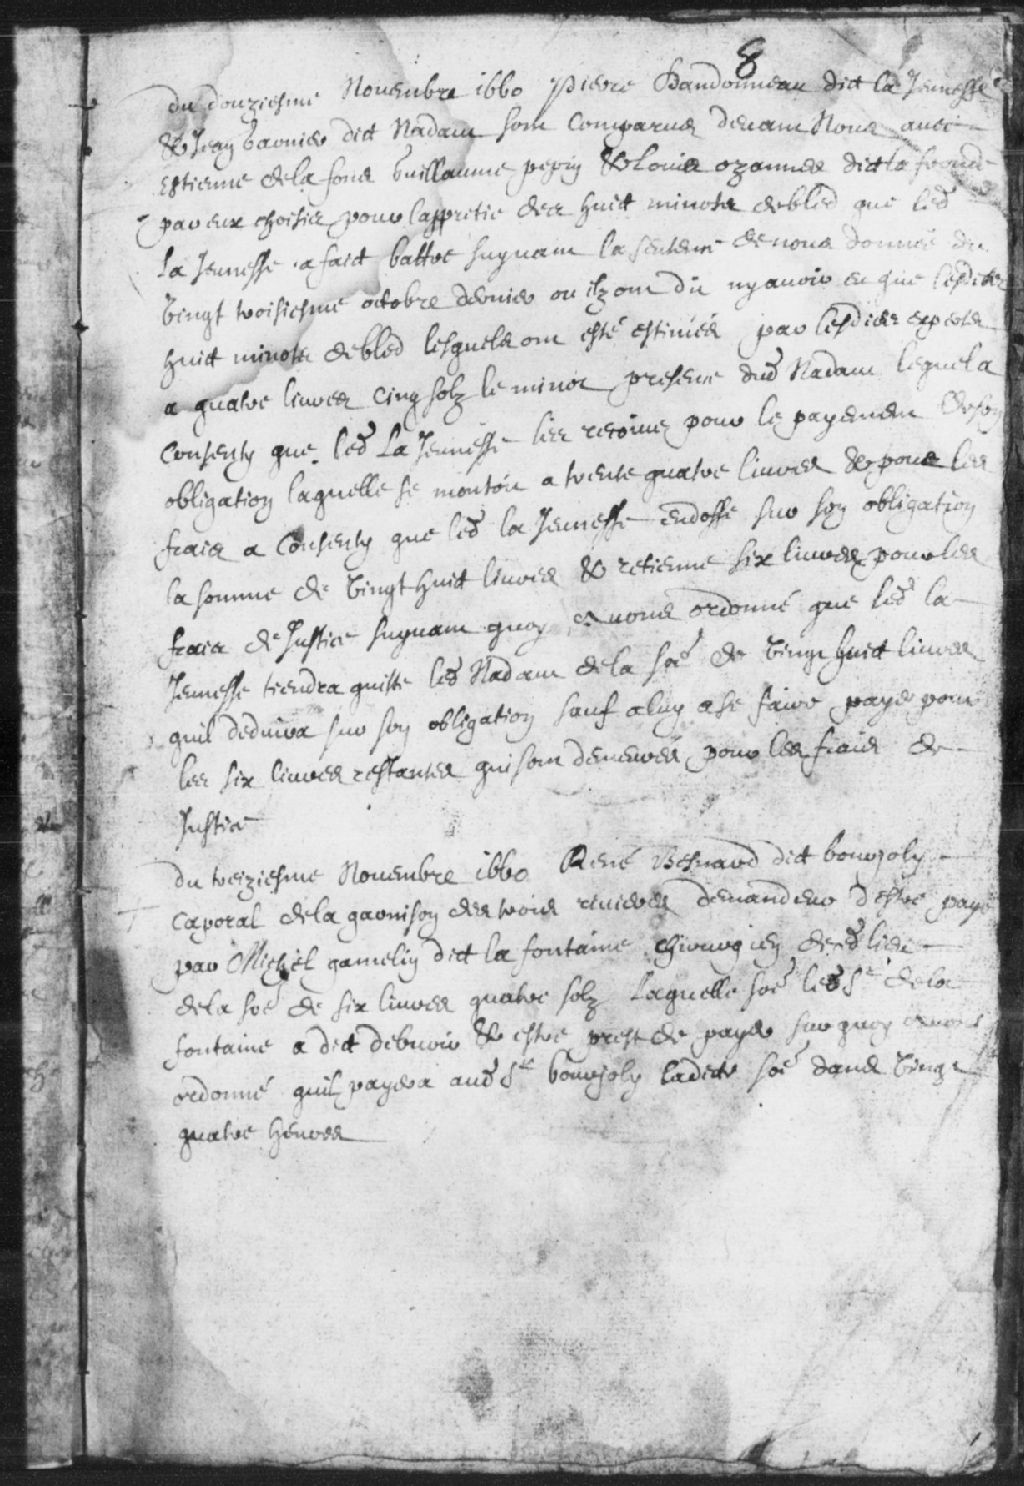 8
du douziesme Nouembre 1660 Pierre Dandonneau dict la Jeunesse
& Jean baruier dict Nadam sont comparus deuant Nous auec
Estienne de la fons Guillaume pepin & Louis ozannes dict la fronde
par eux choisis pour lapretie des huict minots de bled que led
la Jeunesse a faict battre suyuant la sentence de nous donnée du
vingt troisiesme octobre dernier ou ilz ont dit ny auoir eu que lesdits
huict minots de bled lesquels ont esté estimés par lesdits experts
a quatre liures cinq solz le minot presence dud Nadam lequel a
consenty que led La Jeunesse les retint pour le payement de son
obligation laquelle se montoit a trente quatre liures & pour les
frais a consenty que led la Jeunesse endosse sur son obligation
la somme de vingt huict liures & retienne six liures pour les
frais de Justice suyuant quoy a nous ordonné que led la
Jeunesse tiendra quitte led Nadam de la soe de vingt huict liures
quil deduira sur son obligation sauf a luy a se faire payer pour
les six liures restantes qui sont demeurés pour les frais de
Justice
du treiziesme Nouembre 1660 René Besnard dict bourjoly
caporal de la garnison des trois riuieres demandeur destre payé
par Michel gamelin dict la fontaine chirurgien dud lieu
de la soe de six liures quatre solz laquelle soe led Sr de la
fontaine a dict debuoir & estre prest de payer sur quoy auons
ordonné quil payera aud Sr bourjoly ladicte soe dans vingt
quatre heures